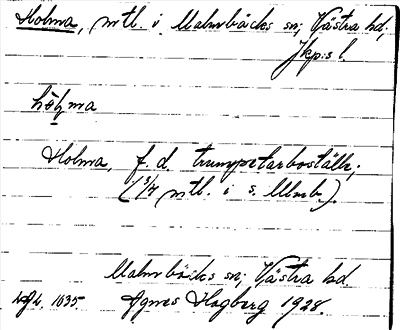 Holma, mtl. i Malmbäcks sn; Västra hd.
Jkp:s l.
Holma, f. d. trumpetarboställe;
(3/4 mtl. i s. Mmb.).
Malmbäcks sn; Västra hd.
1635 Agnes Hogberg 1928.